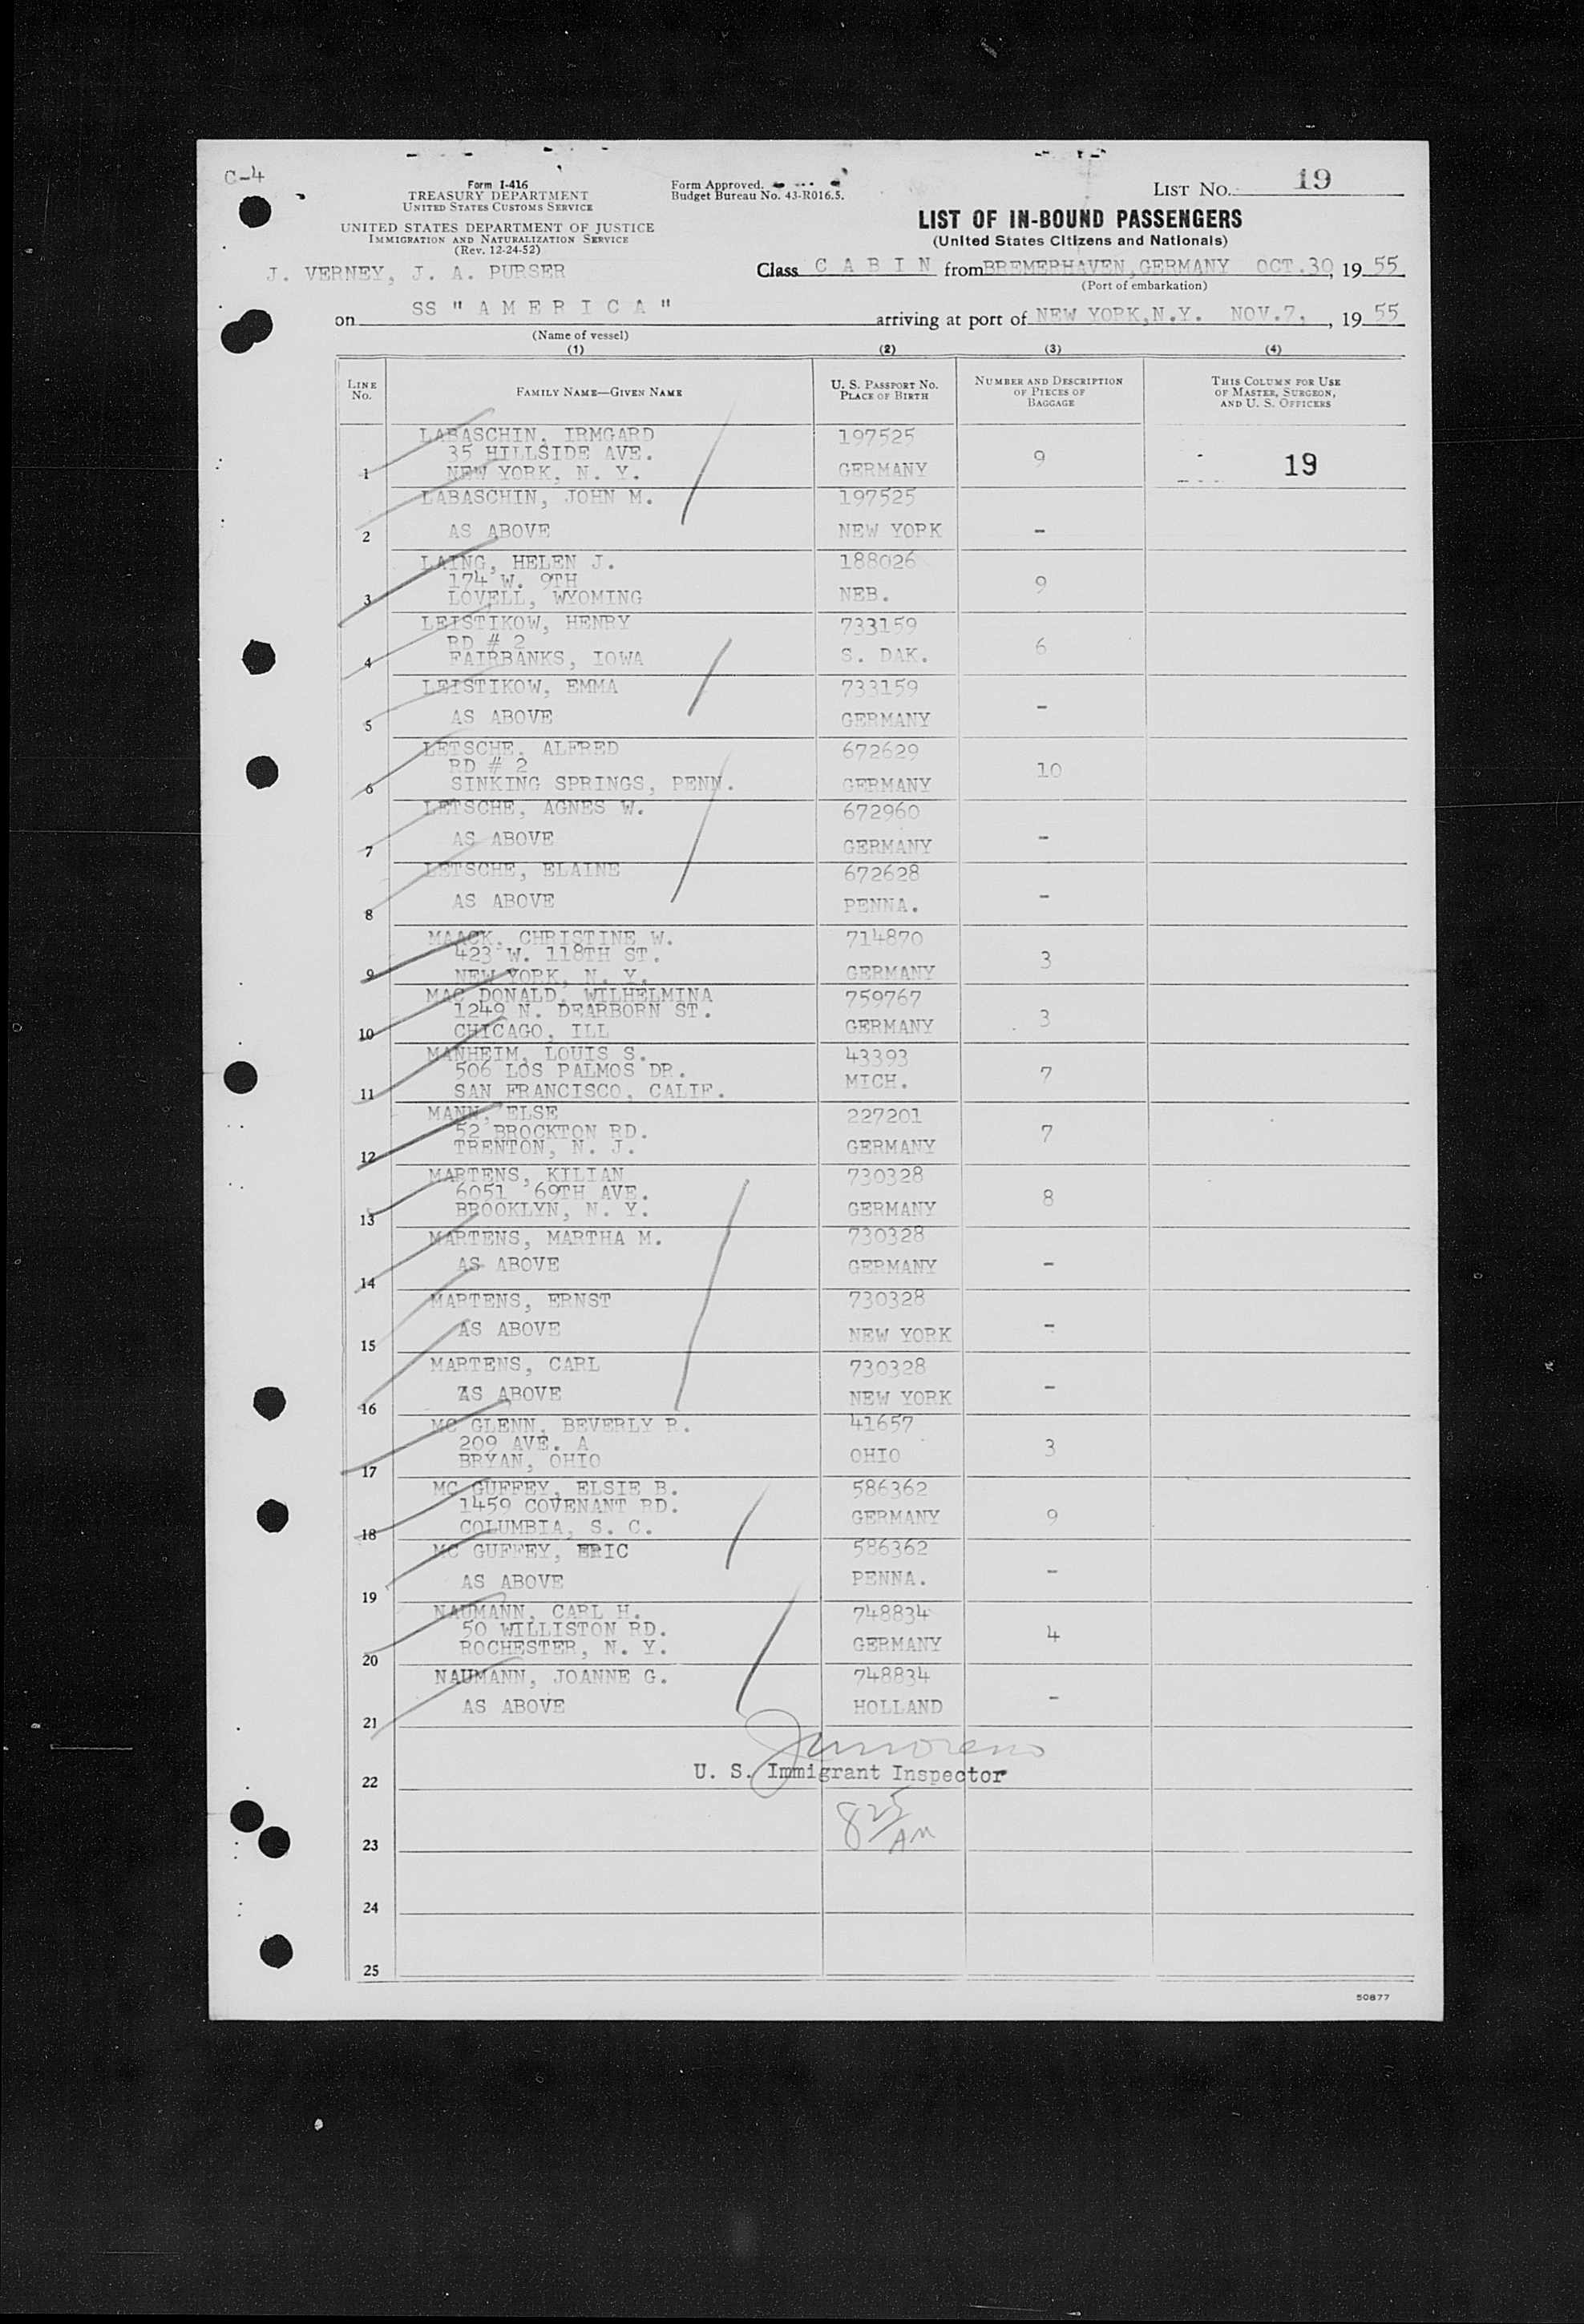 C-4
Form I-416
TREASURY DEPARTMENT
UNITED STATES CUSTOMS SERVICE
UNITED STATES DEPARTMENT OF JUSTICE
IMMIGRATION AND NATURALIZATION SERVICE
(Rev. 12-24-52)
Form Approved.
Budget Bureau No. 43-R016.5.
LIST NO. 19
LIST OF IN-BOUND PASSENGERS
(United States Citizens and Nationals)
J. VERNEY, J. A. PURSER
Class C A B I N from BREMERHAVEN, GERMANY OCT.30, 19 55
(Port of embarkation)
on SS " A M E R I C A " arriving at port of NEW YORK, N.Y. NOV.7, , 19 55
(Name of vessel)
(1) (2) (3) (4)
LINE No. FAMILY NAME—GIVEN NAME U. S. PASSPORT NO. PLACE OF BIRTH NUMBER AND DESCRIPTION OF PIECES OF BAGGAGE THIS COLUMN FOR USE OF MASTER, SURGEON, AND U. S. OFFICERS
LABASCHIN, IRMGARD 197525
35 HILLSIDE AVE. 9
1 NEW YORK, N. Y. GERMANY 19
LABASCHIN, JOHN M. 197525
2 AS ABOVE NEW YORK -
LAING, HELEN J. 188026
174 W. 9TH 9
3 LOVELL, WYOMING NEB.
LEISTIKOW, HENRY 733159
RD # 2 6
4 FAIRBANKS, IOWA S. DAK.
LEISTIKOW, EMMA 733159
5 AS ABOVE GERMANY -
LETSCHE, ALFRED 672629
RD # 2 10
6 SINKING SPRINGS, PENN. GERMANY
LETSCHE, AGNES W. 672960
7 AS ABOVE GERMANY -
LETSCHE, ELAINE 672628
8 AS ABOVE PENNA. -
MAACK, CHRISTINE W. 714870
423 W. 118TH ST. 3
9 NEW YORK, N. Y. GERMANY
MAC DONALD, WILHELMINA 759767
1249 N. DEARBORN ST. 3
10 CHICAGO, ILL GERMANY
MANHEIM, LOUIS S. 43393
506 LOS PALMOS DR. 7
11 SAN FRANCISCO, CALIF. MICH.
MANN, ELSE 227201
52 BROCKTON RD. 7
12 TRENTON, N. J. GERMANY
MARTENS, KILIAN 730328
6051 69TH AVE. 8
13 BROOKLYN, N. Y. GERMANY
MARTENS, MARTHA M. 730328
14 AS ABOVE GERMANY -
MARTENS, ERNST 730328
15 AS ABOVE NEW YORK -
MARTENS, CARL 730328
16 AS ABOVE NEW YORK -
MC GLENN, BEVERLY R. 41657
209 AVE. A 3
17 BRYAN, OHIO OHIO
MC GUFFEY, ELSIE B. 586362
1459 COVENANT RD. 9
18 COLUMBIA, S. C. GERMANY
MC GUFFEY, ERIC 586362
19 AS ABOVE PENNA. -
NAUMANN, CARL H. 748834
50 WILLISTON RD. 4
20 ROCHESTER, N. Y. GERMANY
NAUMANN, JOANNE G. 748834
21 AS ABOVE HOLLAND -
22 U. S. Immigrant Inspector
23 8 25 AM
24
25
50877